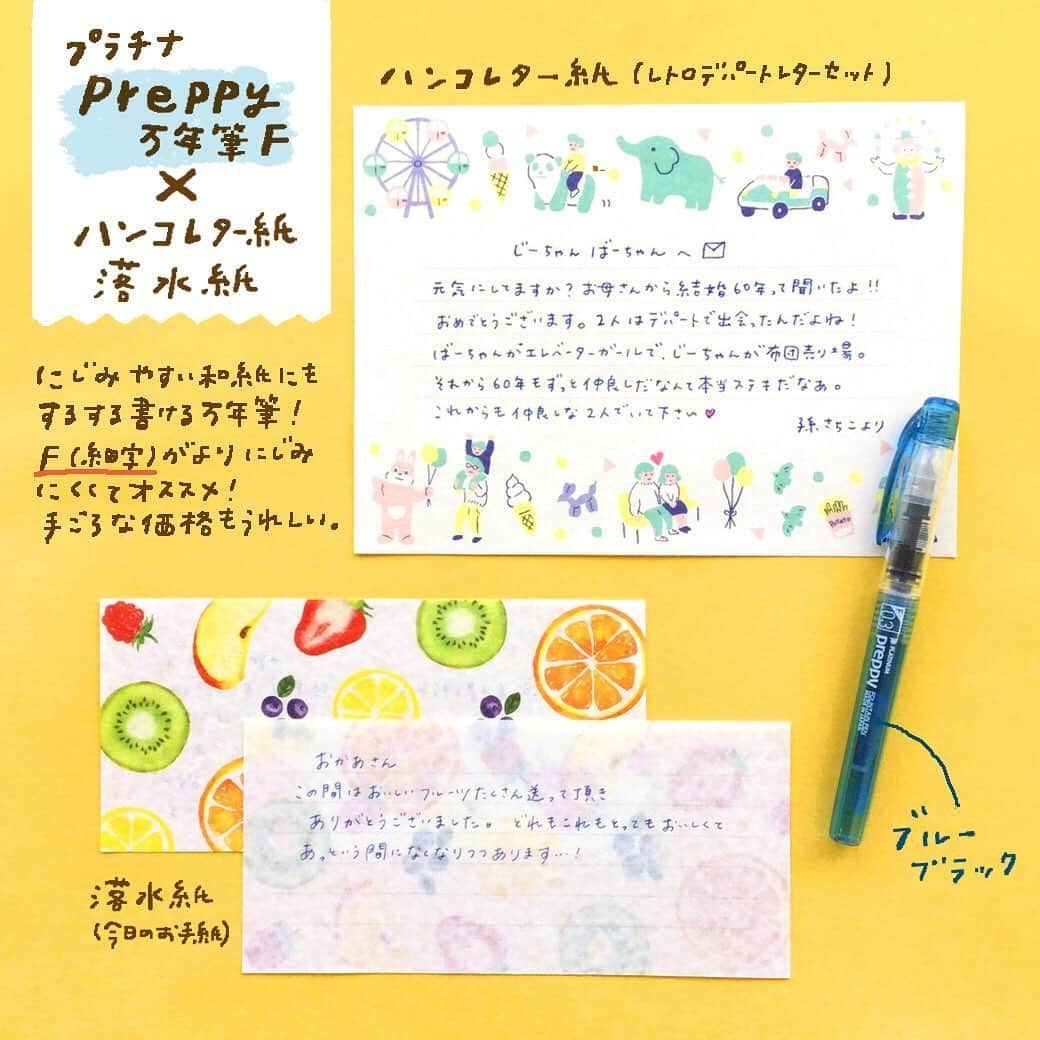 プラチナ
preppy
万年筆F
×
ハンコレター紙
落水紙
ハンコレター紙(レトロデパートレターセット)
じーちゃん ばーちゃん へ
元気にしてますか?お母さんから結婚60年って聞いたよ!!
おめでとうございます。2人はデパートで出会ったんだよね!
ばーちゃんがエレベーターガールで、じーちゃんが布団売り場。
それから60年もずっと仲良しだなんて本当ステキだなあ。
これからも仲良しな2人でいて下さい
孫、さちこより
にじみやすい和紙にも
するする書ける万年筆!
F(細字)がよりにじみ
にくくてオススメ!
手ごろな価格もうれしい。
Potato
03
PLATINUM
preppy
FOUNTAIN PEN
おかあさん
この間はおいしいフルーツたくさん送って頂き
ありがとうございました。どれもこれもとってもおいしくて
あっという間になくなりつつあります…!
落水紙
(今日のお手紙)
ブルー
ブラック